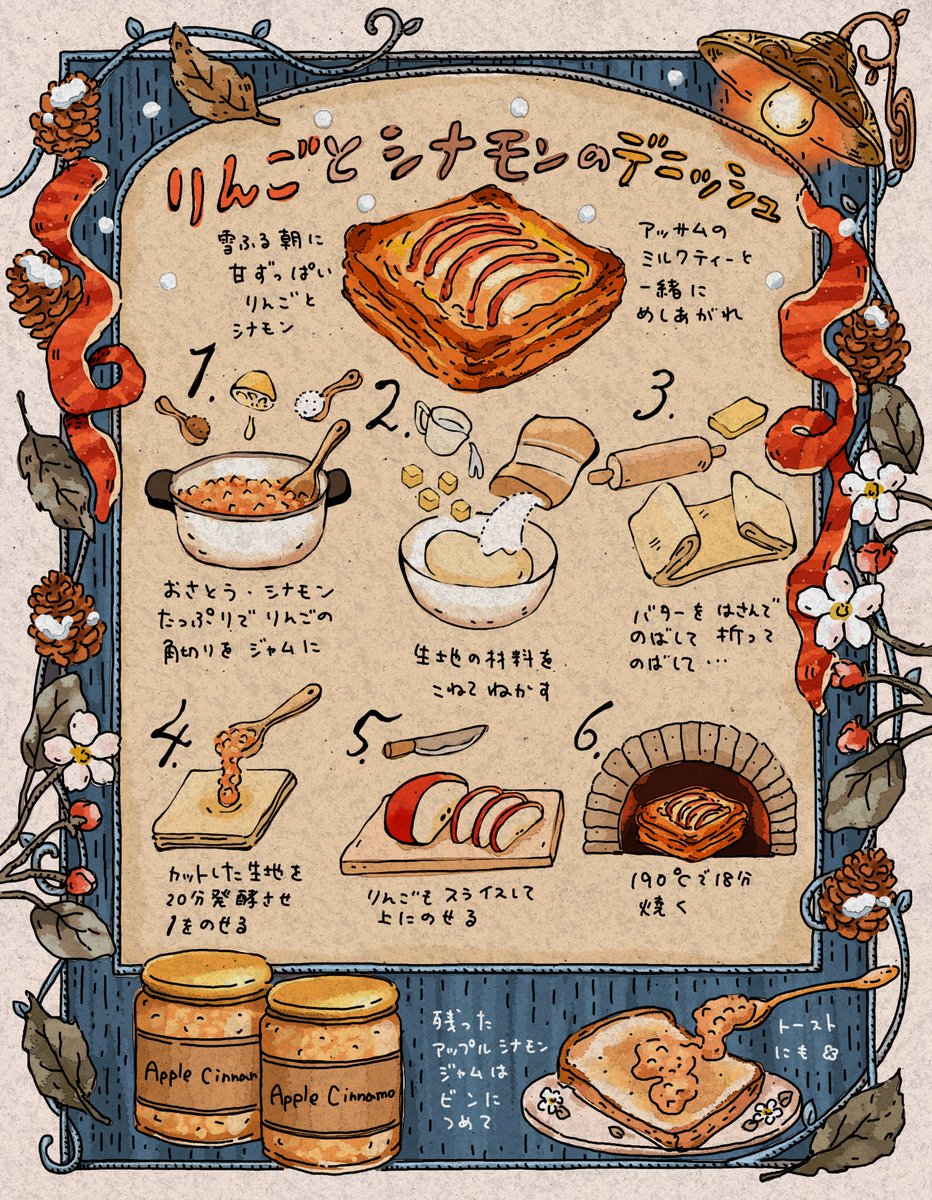 りんごと シナモンのデニッシュ
雪ふる朝に
甘ずっぱい
りんごと
シナモン
アッサムの
ミルクティーと
一緒に
めしあがれ
1.
おさとう・シナモン
たっぷりで りんごの
角切りを ジャムに
2.
生地の材料を
こねて ねかす
3.
バターを はさんで
のばして 折って
のばして…
4.
カットした生地を
20分発酵させ
1をのせる
5.
りんごも スライスして
上にのせる
6.
190℃で18分
焼く
Apple Cinnam
Apple Cinnamo
残った
アップルシナモン
ジャムは
ビンに
つめて
トースト
にも&